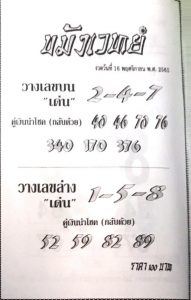 ขมังเวทย์
งวดวันที่ 16 พฤศจิกายน พ.ศ. 2561
วางเลขบน "เด่น" 2-4-7
คู่เงินนำโชค (กลับด้วย) 40 46 70 76
340 170 376
วางเลขล่าง "เด่น" 1-5-8
คู่เงินนำโชค (กลับด้วย)
52 59 82 89
ราคา ๑๐๐ บาท